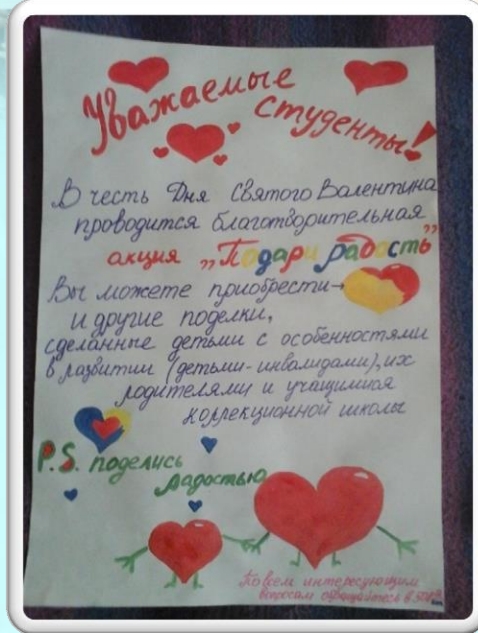 Уважаемые
студенты!
В честь Дня Святого Валентина
проводится благотворительная
акция „Подари радость"
Вы можете приобрести→
и другие поделки,
сделанные детьми с особенностями
в развитии (детьми-инвалидами), их
родителями и учащимися
коррекционной школы
P.S. поделись
радостью
По всем интересующим
вопросам обращайтесь в